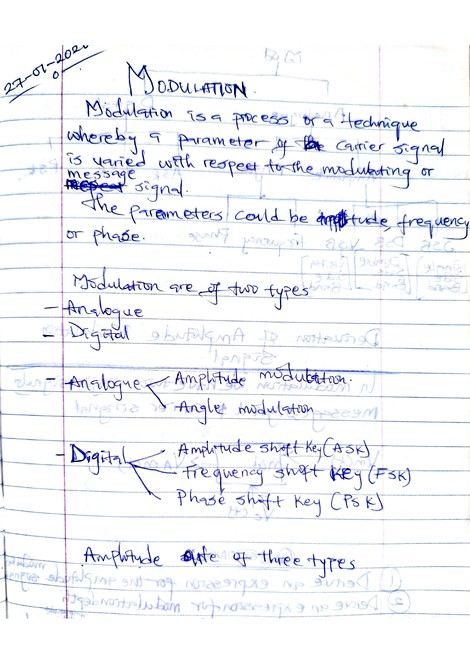 27-01-2020
MODULATION
Modulation is a process or a technique
whereby a parameter of carrier signal
is varied with respect to the modulating or
message
signal.
The parameters could be amplitude, frequency
or phase.
Modulation are of two types
- Analogue
- Digital
- Analogue Amplitude modulation.
Angle modulation
- Digital Amplitude shift key (ASK)
Frequency shift key (FSK)
Phase shift key (PSK)
Amplitude are of three types